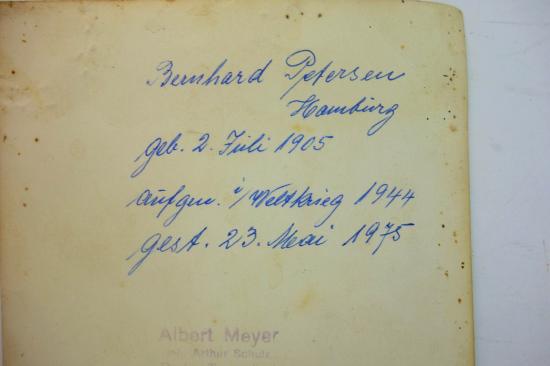 Bernhard Petersen
Hamburg
geb. 2. Juli 1905
aufgen. i/Weltkrieg 1944
gest. 23. Mai 1975
Albert Meyer
Arthur Schulz